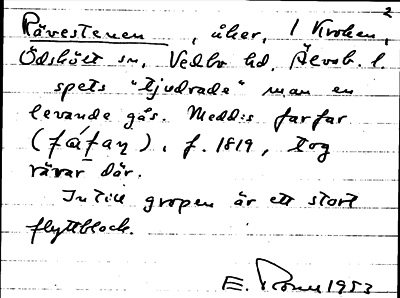 2
Rävestenen, åker, 1 Kroken,
Ödskölt sn, Vedbo hd, Älvsb. l.
spets "tjudrade" man en
levande gås. Medd:s farfar
(fáfar), f. 1819, tog
rävar där.
Intill gropen är ett stort
flyttblock.
E. 1953